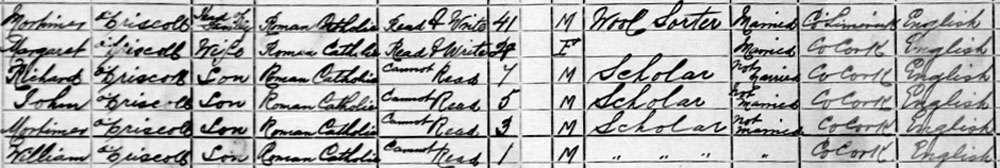 Mortimer O'Driscoll Head of Family Roman Catholic Read & Write 41 M Wool Sorter Married Co Limerick English
Margaret O'Driscoll Wife Roman Catholic Read & Write F Married Co Cork English
Richard O'Driscoll Son Roman Catholic Cannot Read 7 M Scholar Not Married Co Cork English
John O'Driscoll Son Roman Catholic Cannot Read 5 M Scholar Not Married Co Cork English
Mortimer O'Driscoll Son Roman Catholic Cannot Read 3 M Scholar Not Married Co Cork English
William O'Driscoll Son Roman Catholic Cannot Read 1 M " " " " Co Cork English